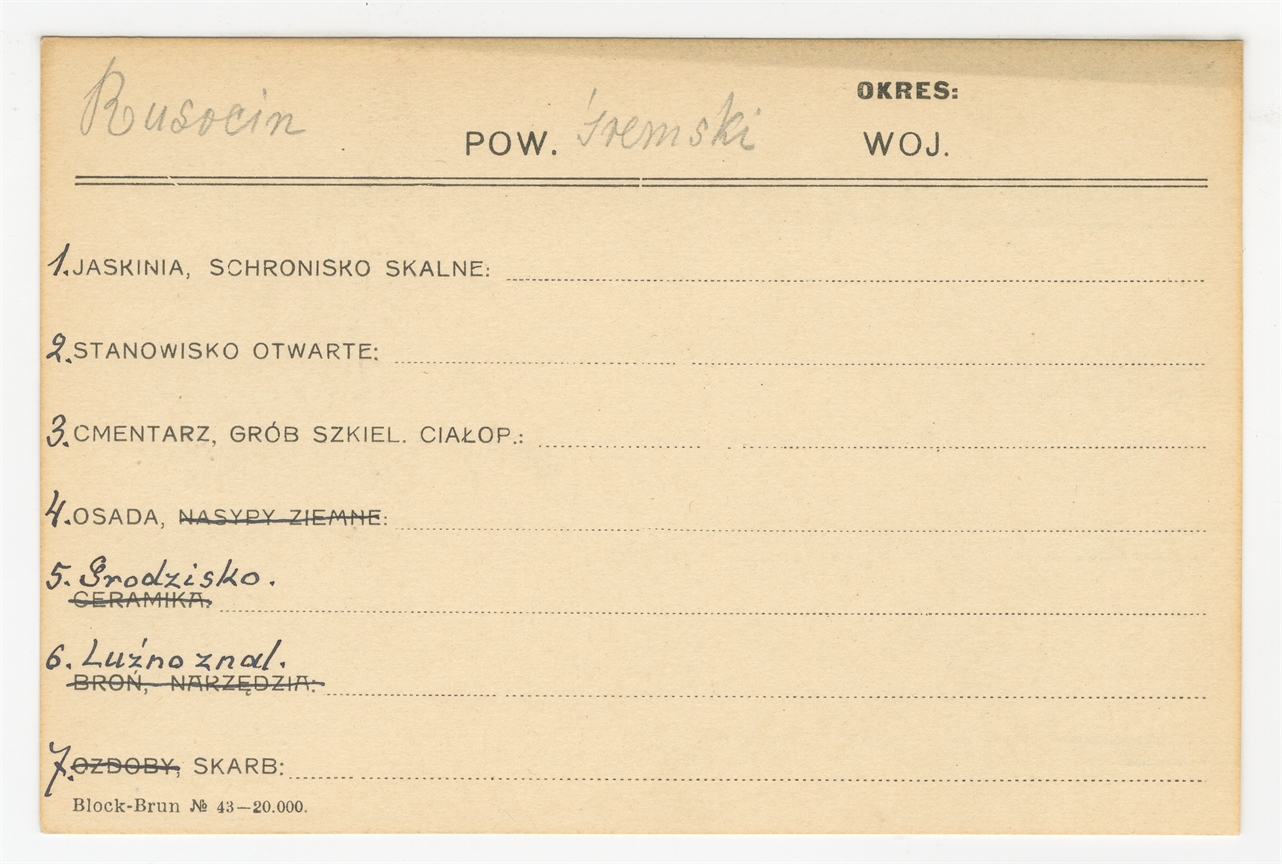 Rusocin
OKRES:
POW. śremski WOJ.
1. JASKINIA, SCHRONISKO SKALNE:
2. STANOWISKO OTWARTE:
3. CMENTARZ, GRÓB SZKIEL. CIAŁOP.:
4. OSADA, NASYPY ZIEMNE:
5. Grodzisko.
CERAMIKA:
6. Luźno znal.
BROŃ, NARZĘDZIA:
7. OZDOBY, SKARB:
Block-Brun № 43—20.000.